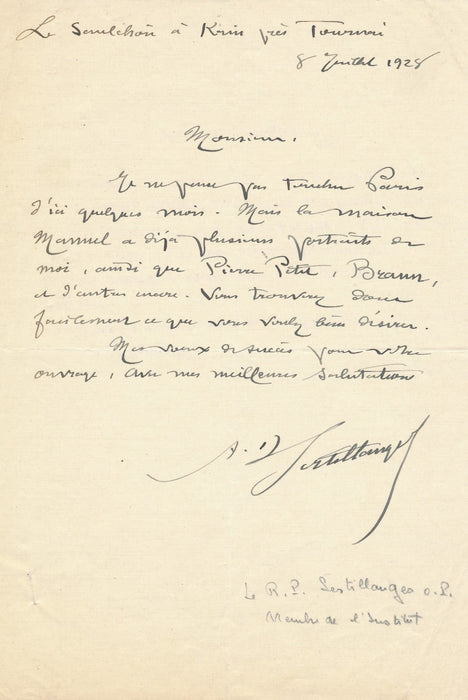 Le Saulchoir à Kain près Tournai
8 Juillet 1928
Monsieur,
Je ne pense pas toucher Paris
d'ici quelques mois. Mais la maison
Manuel a déjà plusieurs portraits de
moi, ainsi que Pierre Petit, Braun,
et d'autres encore. Vous trouverez donc
facilement ce que vous voulez bien désirer.
Mes vœux de succès pour votre
ouvrage, avec mes meilleures salutations
A. D Sertillanges
Le R. P. Sertillanges O. P.
Membre de l'Institut